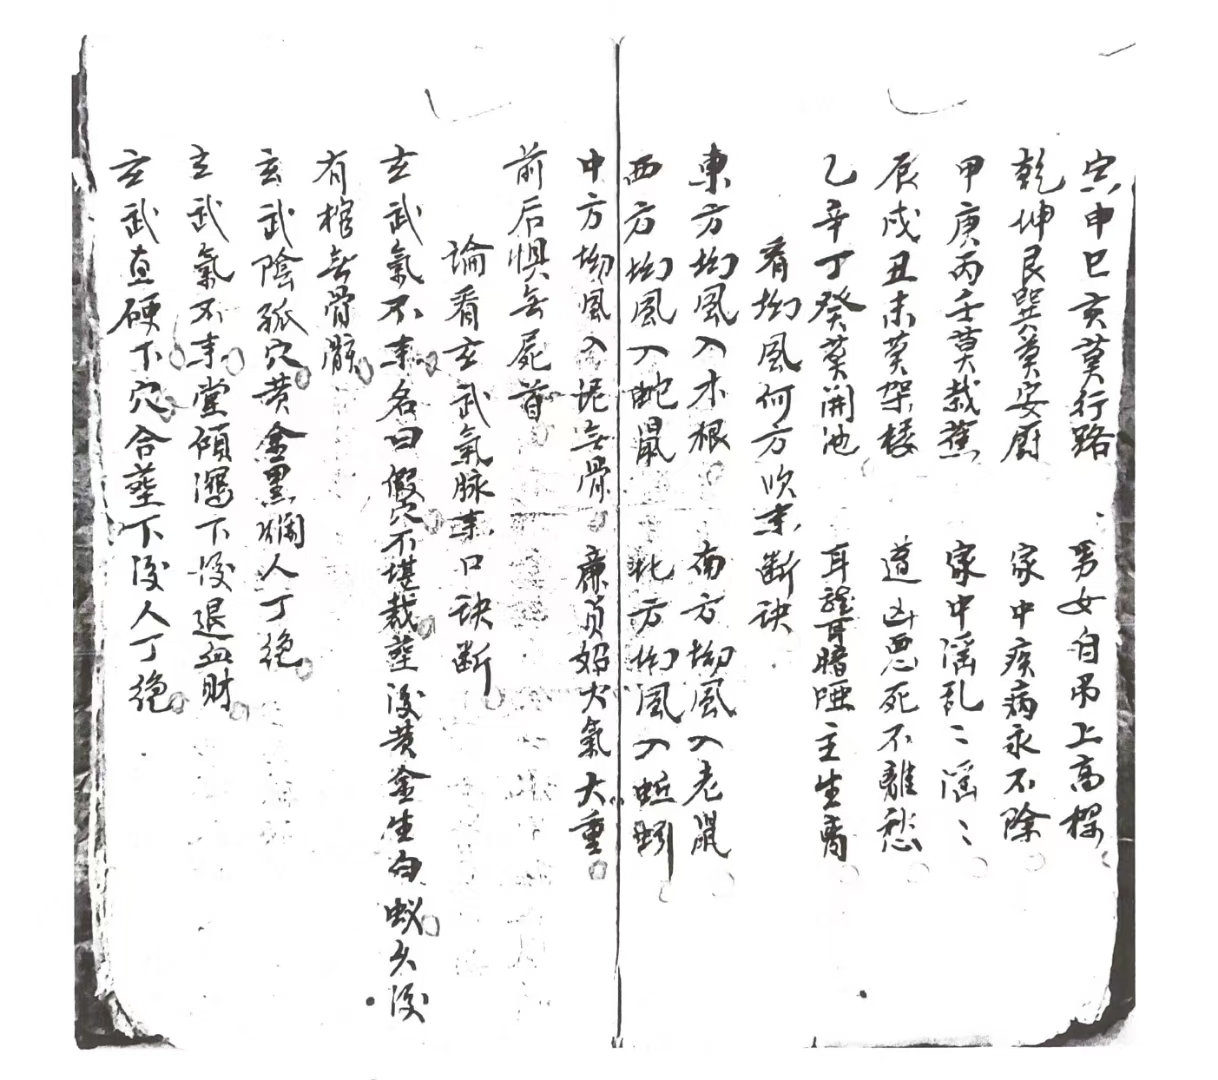 寅申巳亥莫行路 男女自吊上高樑
乾坤艮巽莫安廚 家中疾病永不除
甲庚丙壬莫栽蕉 家中淫乱〻淫〻
辰戌丑未莫架楼 遭凶悪死不離愁
乙辛丁癸莫開池 耳聾耳暗啞主生
看坳風何方吹来断诀
東方坳風入木根 南方坳風入老鼠
西方坳風入蛇鼠 北方坳風入蚯蚓
中方坳風入 无骨 廉貞如火氣大重
前后惧无屍首
論看玄武氣脉来口诀断
玄武氣不来名曰假穴不堪裁塟後黄金生白蚁久後
有棺无骨骸
玄武陰孤穴黄金黑爛人丁绝
玄武氣不来堂傾瀉下後退血财
玄武直硬下穴合塟下後人丁绝